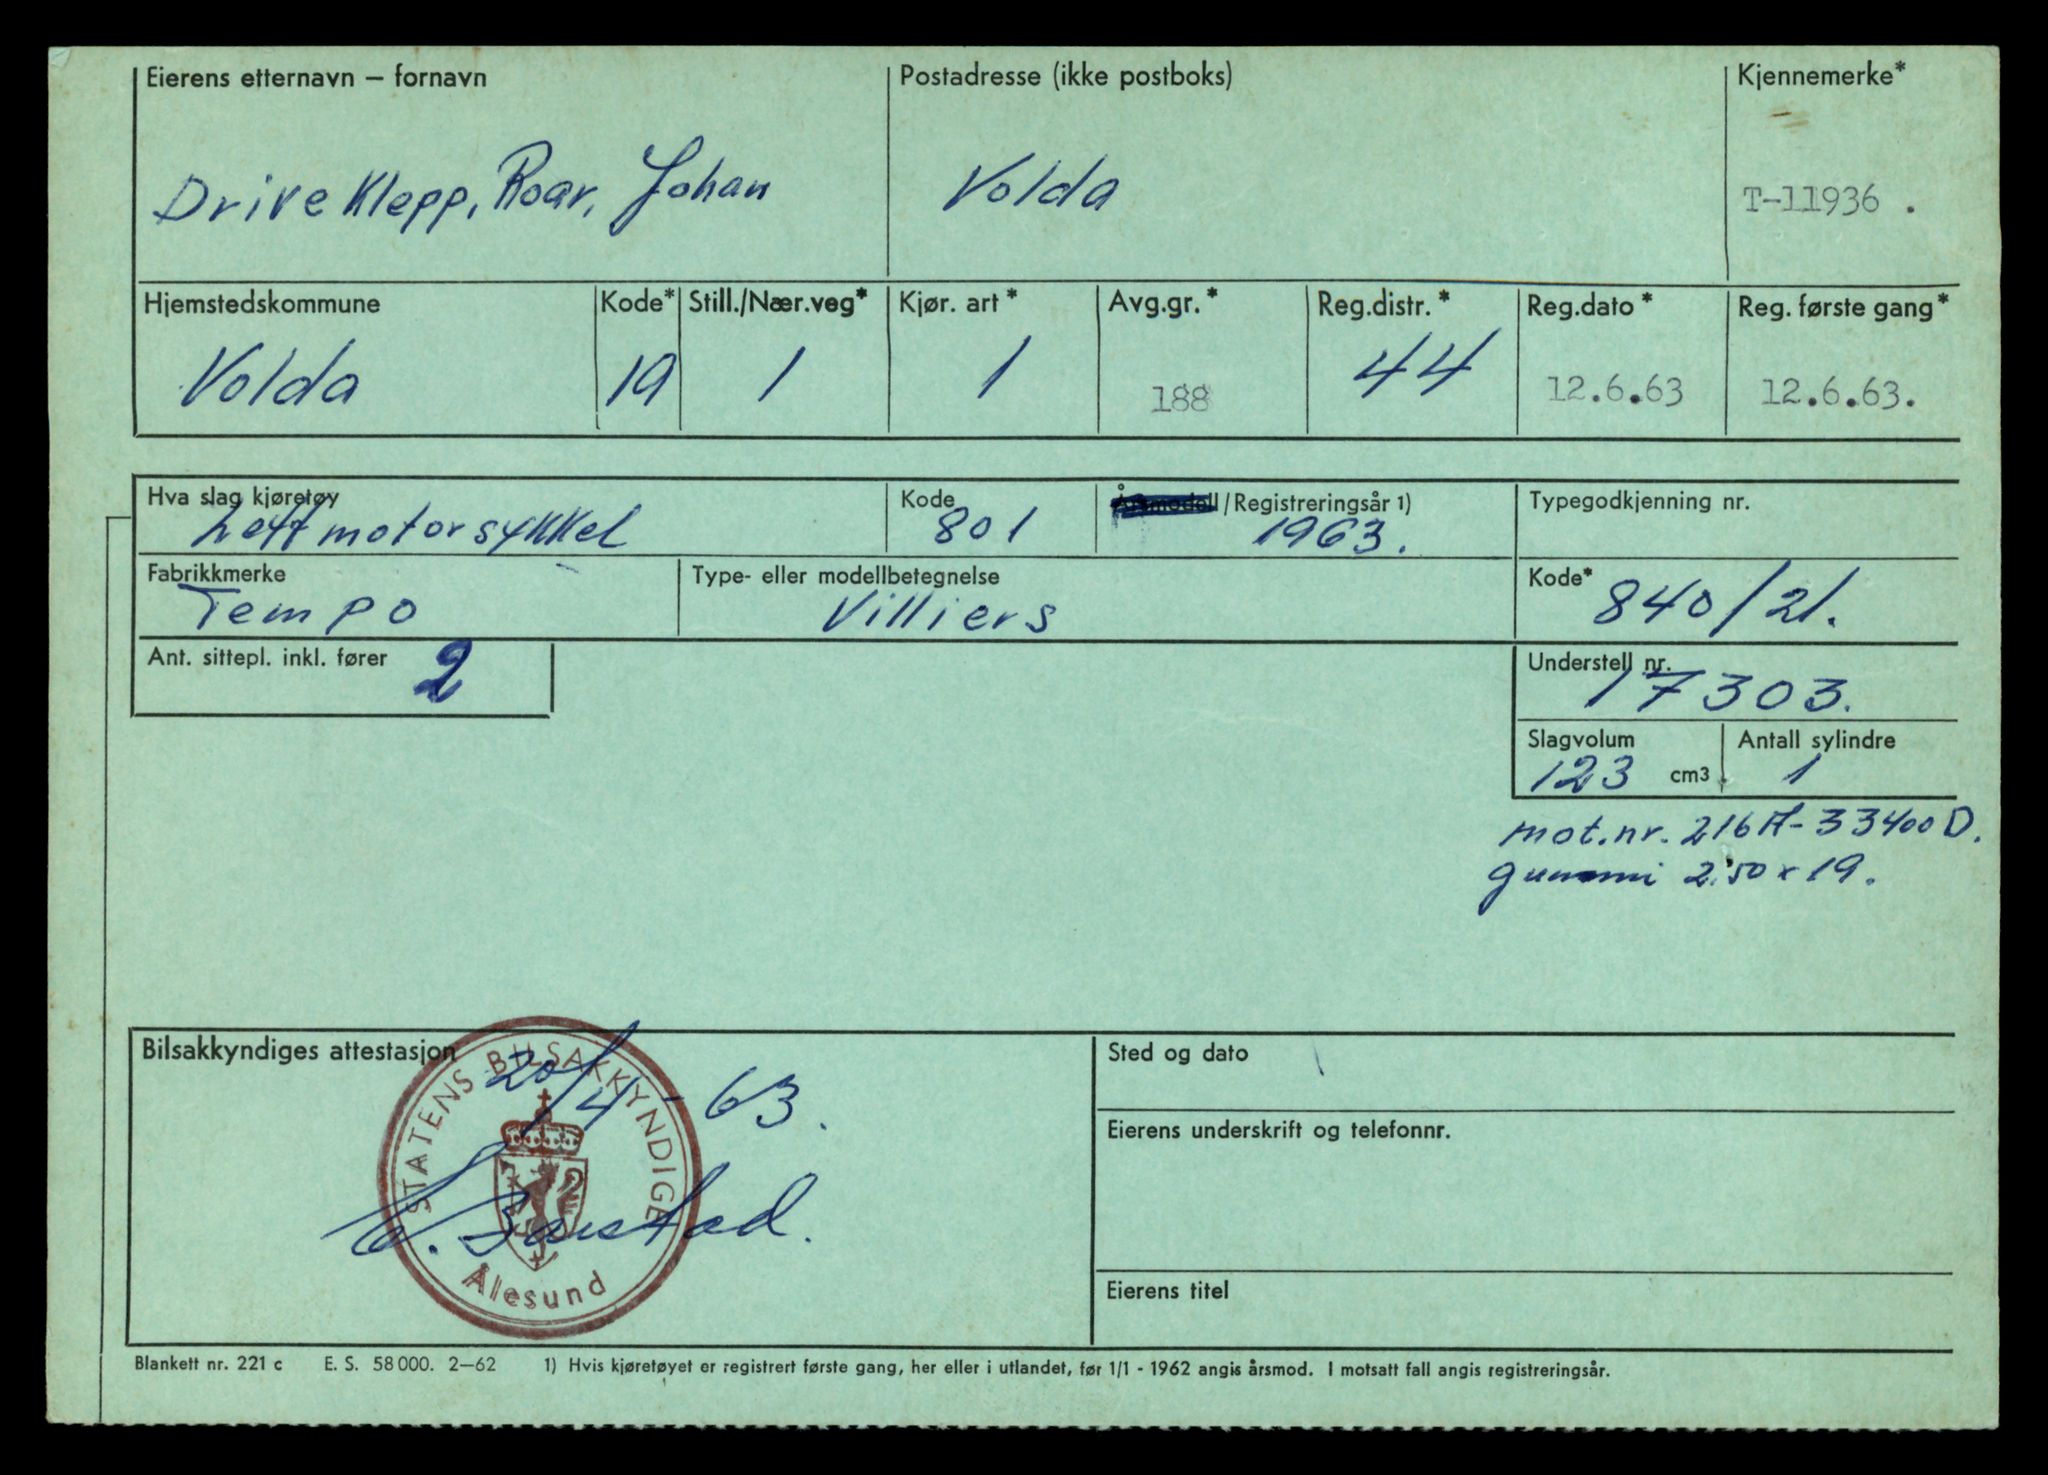 Eierens etternavn – fornavn
Postadresse (ikke postboks)
Kjennemerke*
Driveklepp, Roar, Johan
Volda
T-11936 .
Hjemstedskommune
Kode*
Still./Nær.veg*
Kjør. art*
Avg.gr.*
Reg.distr.*
Reg.dato*
Reg. første gang*
Volda
19
1
1
188
44
12.6.63
12.6.63.
Hva slag kjøretøy
Kode
Årsmodell/Registreringsår 1)
Typegodkjenning nr.
Lett motorsykkel
801
1963.
Fabrikkmerke
Type- eller modellbetegnelse
Kode*
Tempo
Villiers
840/21.
Ant. sittepl. inkl. fører 2
Understell nr.
17303.
Slagvolum
Antall sylindre
123 cm3
1
mot.nr. 216A-33400D.
gummi 2.50 x 19.
Bilsakkyndiges attestasjon
Sted og dato
STATENS BILSAKKYNDIGE
20/4-63.
Eierens underskrift og telefonnr.
Ålesund
Eierens titel
Blankett nr. 221 c E. S. 58 000. 2–62 1) Hvis kjøretøyet er registrert første gang, her eller i utlandet, før 1/1 - 1962 angis årsmod. I motsatt fall angis registreringsår.